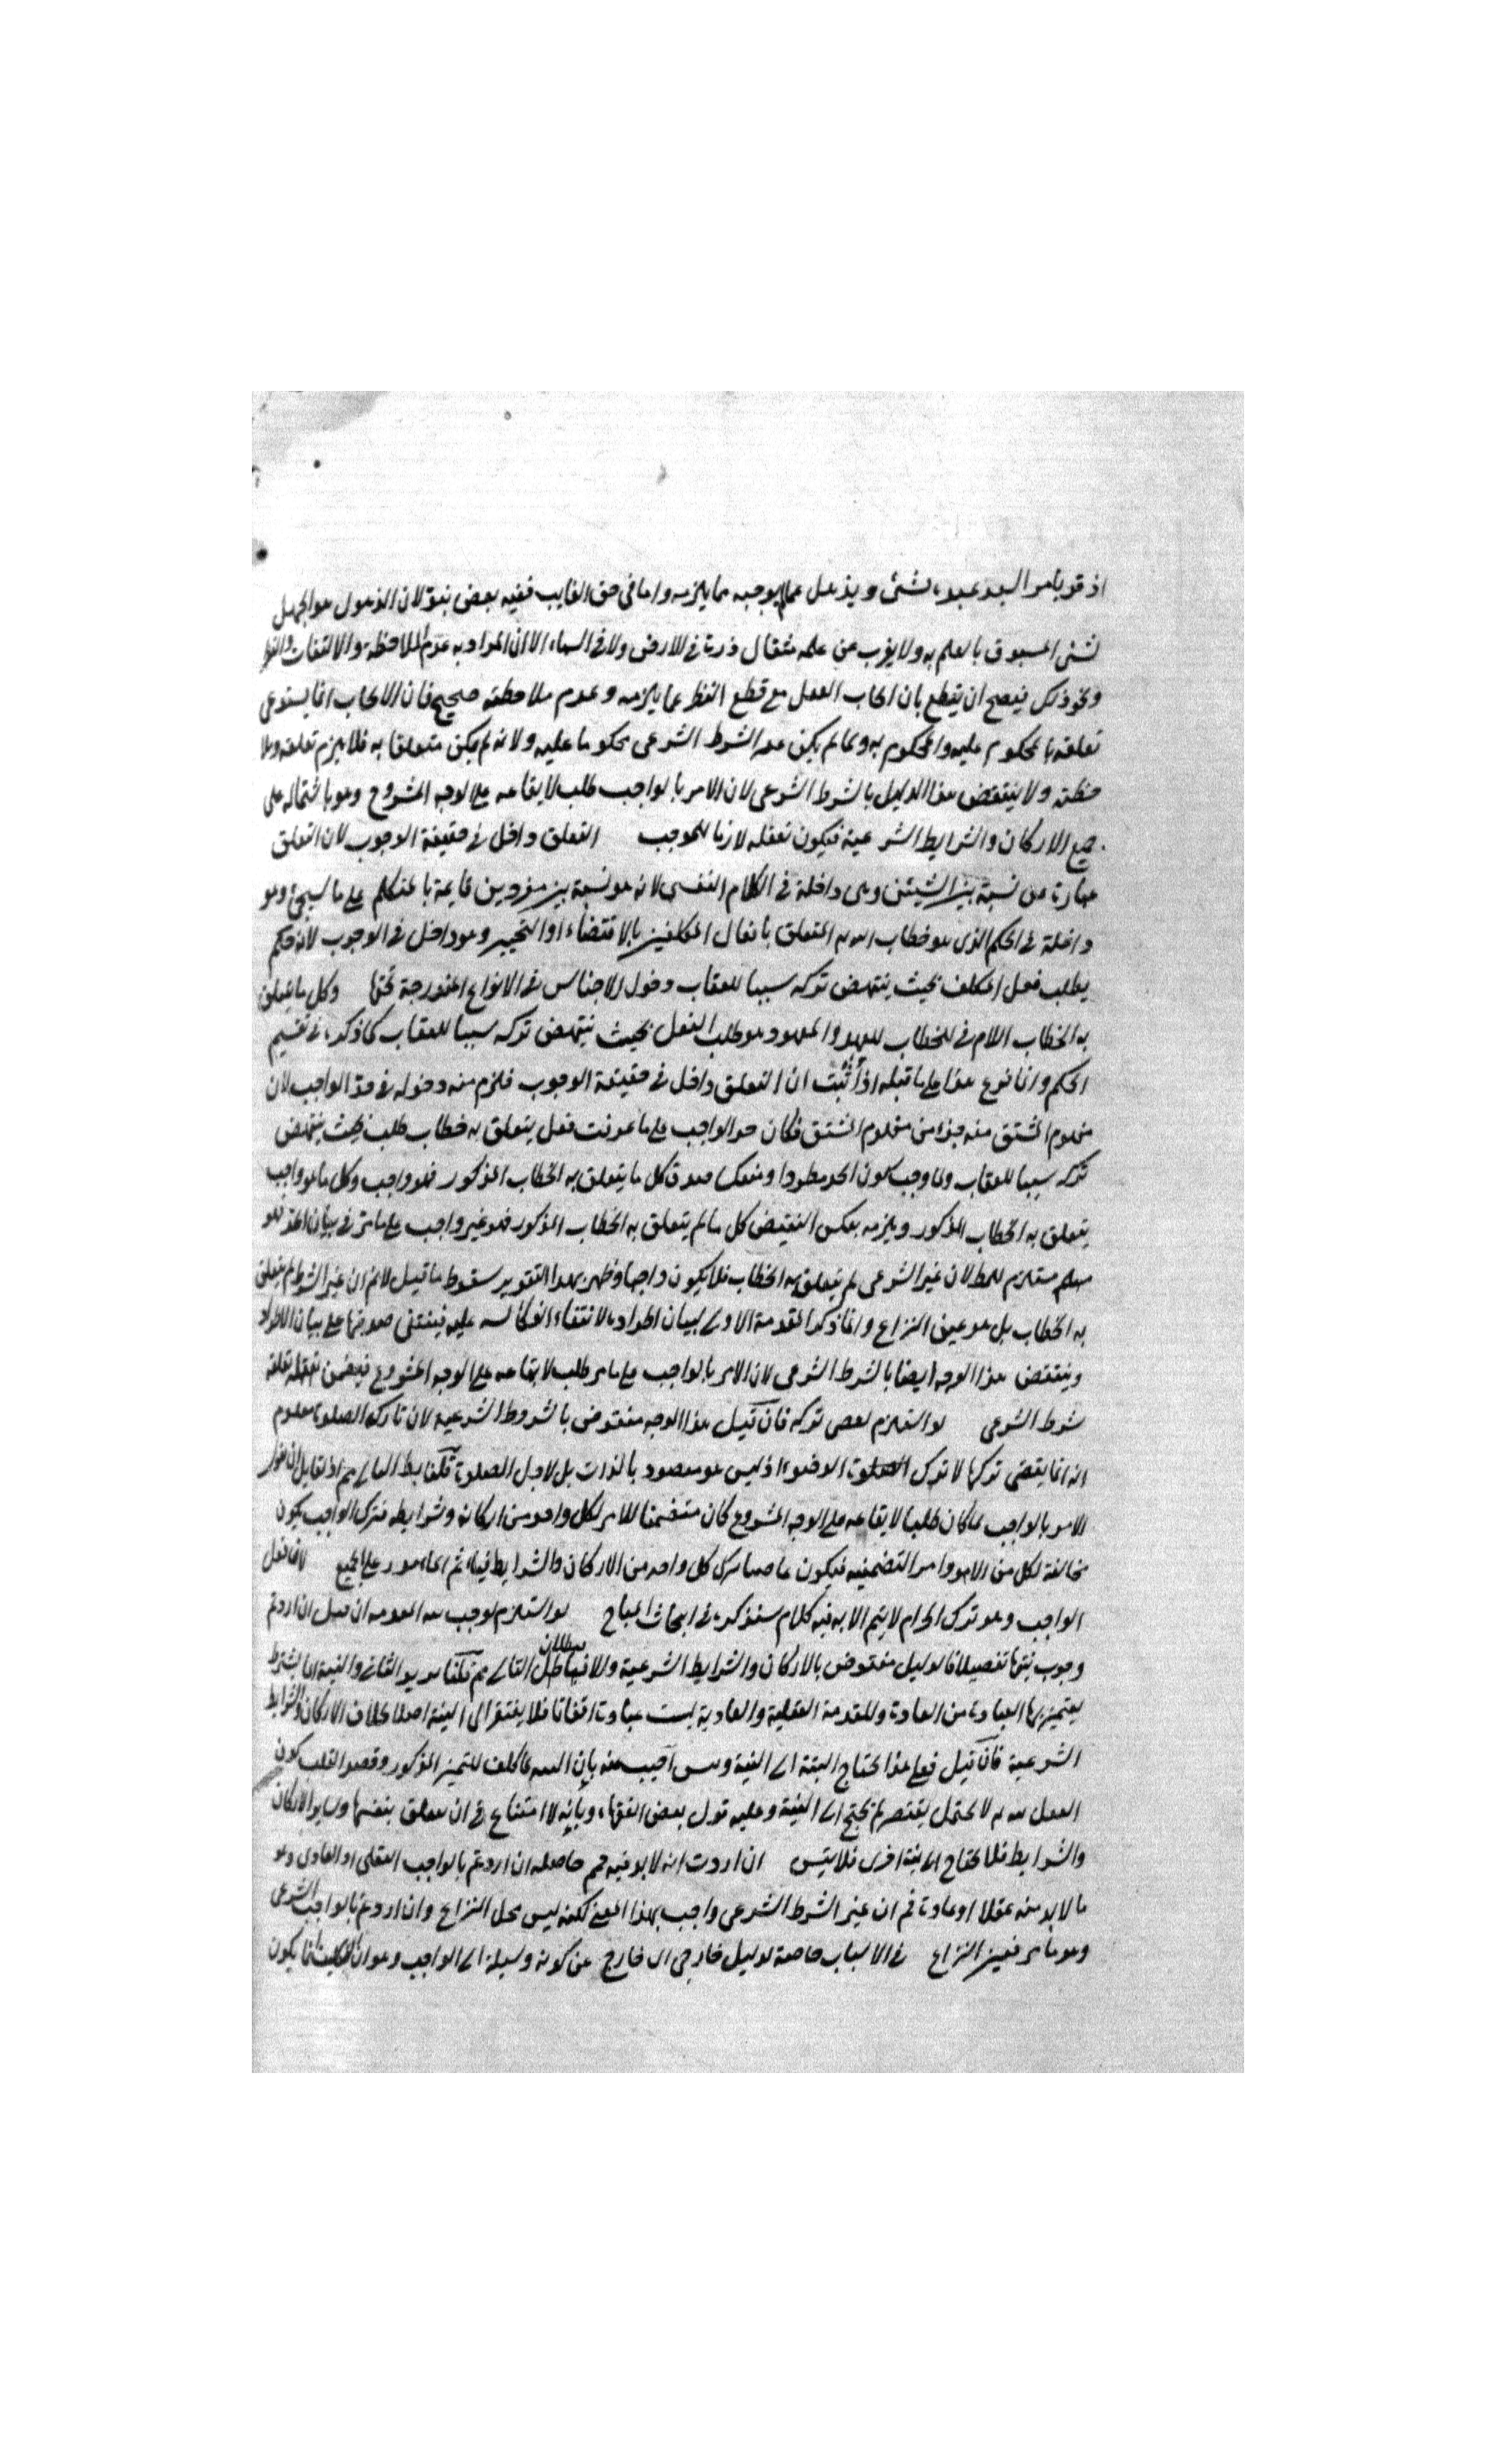 اذ قد يامر السيد عبده بشئ ويذهل عما يوجبه مما يلزمه واما فى حق الغايب ففيه بعض نبوّ لان الذهول هو الجهل
بشئ المسبوق بالعلم به ولا يعزب عن علمه مثقال ذرة فى الارض ولا فى السماء الا ان المراد به عدم الملاحظة والالتفات
ونحو ذلك فيصح ان يقطع بان ايجاب الفعل مع قطع النظر عما يلزمه وعدم ملاحظته صحيح فان الايجاب انما يستدعى
تعلقه بالمحكوم عليه والمحكوم به ولما لم يكن غير الشرط الشرعى محكوما عليه ولا به لم يكن متعلقا به فلا يلزم تعلقه وملا
حظته ولا ينتقض هذا الدليل بالشرط الشرعى لان الامر بالواجب طلب لايقاعه على الوجه المشروع وهو باشتماله على
جميع الاركان والشرايط الشرعية فيكون تعقله لازما للموجب التعلق داخل فى حقيقة الوجوب لان التعلق
عبارة عن نسبة بين الشيئين وهى داخلة فى الكلام النفسى لانه هو نسبة بين مفردين قايمة بالمتكلم على ما سيجئ وهو
داخلة فى الحكم الذى هو خطاب الله المتعلق بافعال المكلفين بالاقتضاء او التخيير وهو داخل فى الوجوب لانه حكم
يطلب فعل المكلف بحيث ينتهض تركه سببا للعقاب دخول الاجناس فى الانواع المندرجة تحتها وكل ما يتعلق
به الخطاب اللام فى الخطاب للعهد والمعهود هو طلب الفعل بحيث ينتهض تركه سببا للعقاب كما ذكره فى تقسيم
الحكم وانما فرع هذا على ما قبله اذا ثبت ان التعلق داخل فى حقيقة الوجوب فلزم منه دخوله فى حد الواجب لان
مفهوم المشتق منه جزء من مفهوم المشتق فكان حد الواجب على ما عرفت فعل يتعلق به خطاب طلب بحيث ينتهض
تركه سببا للعقاب ولما وجب كون الحد مطردا ومنعكسا صدق كل ما يتعلق به الخطاب المذكور فهو واجب وكل ما هو واجب
يتعلق به الخطاب المذكور ويلزمه بعكس النقيض كل ما لم يتعلق به الخطاب المذكور فهو غير واجب على ما مر فى بيان
مسلم مستلزم للمط لان غير الشرعى لم يتعلق به الخطاب فلا يكون واجبا وظهر بهذا التقرير سقوط ما قيل لانم ان غير الشرط لم يتعلق
به الخطاب بل هو عين النزاع وانما ذكر المقدمة الاولى لبيان اطراده لانتفاء على بيان الاطراد
وينتقض هذا الوجه ايضا بالشرط الشرعى لان الامر بالواجب على ما مر طلب لايقاعه على الوجه المشروع فيضمن
شرط الشرعى لو استلزم لعصى تركه فان قيل هذا الوجه منقوض بالشروط الشرعية لان تارك الصلوة معلوم
انه انما يعصى تركها لا ترك الوضوء اذ ليس هو مقصود بالذات بل لاجل الصلوة قلنا
الامر بالواجب لما كان طلبا لايقاعه على الوجه المشروع كان متضمنا للامر لكل واحد من اركانه وشرايطه فترك الواجب يكون
مخالفة لكل من الاوامر التضمنيه فيكون عاصيا بترك كل واحد من الاركان والشرايط
الواجب وهو ترك الحرام لا يتم الا به فيه كلام سنذكره فى ابحاث المباح لو استلزم لوجب ان اردتم
وجوب نيتها تفصيلا فالدليل منقوض بالاركان والشرايط الشرعية والا فبطلان التالى مم قلنا نريد الثانى والنية انما يشترط
يتميز بها العبادة من العادة والمقدمة العقلية والعادية ليست عبادة اتفاقا فلا يفتقر الى النية اصلا بخلاف الاركان والشرايط
الشرعية فان قيل فعلى هذا يحتاج البتة الى النية اجيب عنه بان للتميز المذكور وقصد القلب كون
الفعل لله لا يحتمل لم يحتج الى النية وعليه قول بعض الفقهاء وبانه لا امتناع فى ان يتعلق بنفسها وساير الاركان
والشرايط فلا يحتاج الى نية اخرى فلا يتس ان اردت انه لا بد فيه مم حاصله ان اردتم بالواجب العقلى او العادى وهو
ما لا بد منه عقلا او عادة فم ان غير الشرط الشرعى واجب بهذا المعنى لكنه ليس محل النزاع وان اردتم بالواجب الشرعى
وهو ما مر فعين النزاع فى الاسباب خاصة لدليل خارجى اى خارج عن كونه وسيلة الى الواجب وهو ان التكليف انما يكون